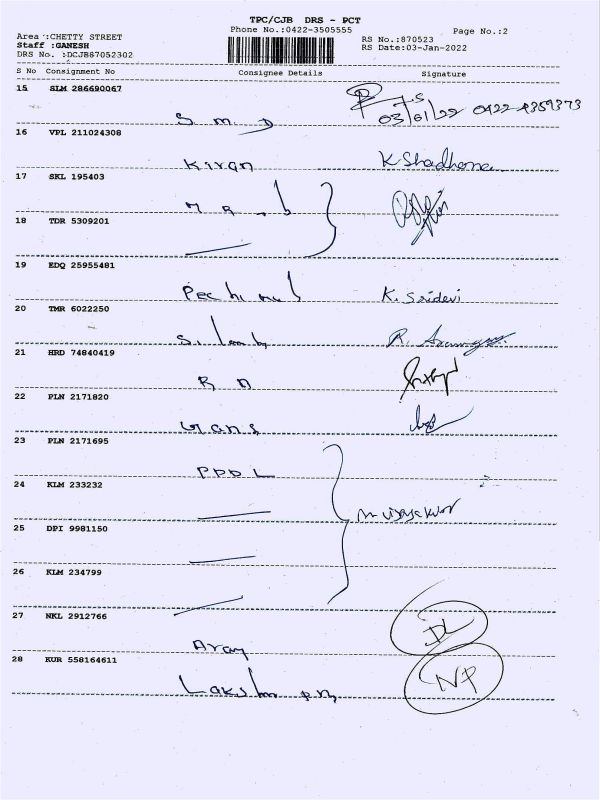 TPC/CJB DRS - PCT
Phone No.:0422-3505555 Page No.:2
Area :CHETTY STREET
Staff :GANESH
DRS No. :DCJB87052302
RS No.:870523
RS Date:03-Jan-2022
S No Consignment No Consignee Details Signature
15 SLM 286690067
S m D 03/01/22 0422 4359373
16 VPL 211024308
Kiran K Shadhana
17 SKL 195403
18 TDR 5309201
19 EDQ 25955481
K. Sridevi
20 TMR 6022250
21 HRD 74840419
R n
22 PLN 2171820
23 PLN 2171695
PPDL
24 KLM 233232
25 DPI 9981150
26 KLM 234799
27 NKL 2912766
DL
28 KUR 558164611
NP